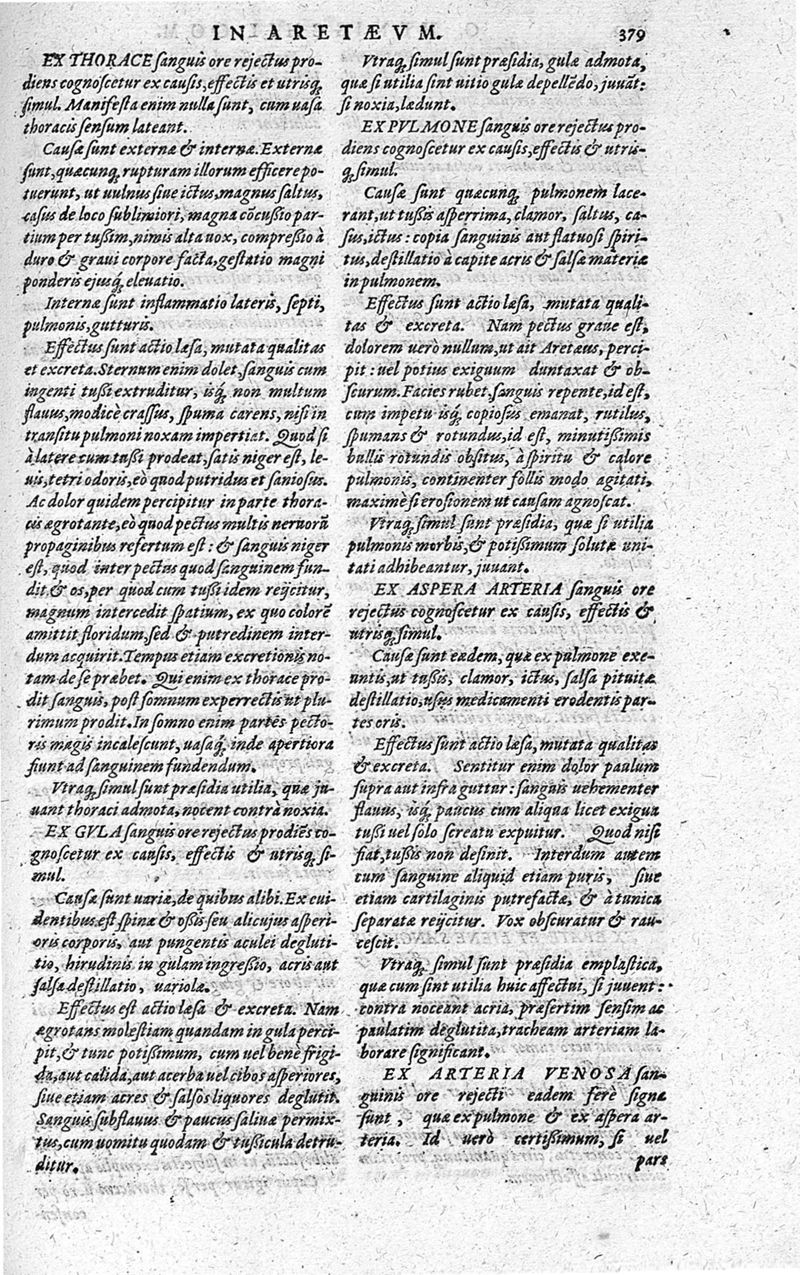 IN ARETÆVM.
379
EX THORACE sanguis ore rejectus pro-
diens cognoscetur ex causis, effectis et utrisq;
simul. Manifesta enim nulla sunt, cum vasa
thoracis sensum lateant.
Causæ sunt externæ & internæ. Externæ
sunt, quæcunq; rupturam illorum efficere po-
tuerunt, ut uulnus siue ictus, magnus saltus,
casus de loco sublimiori, magna cõcußio par-
tium per tußim, nimis alta uox, compreßio à
duro & graui corpore facta, gestatio magni
ponderis ejusq́; eleuatio.
Internæ sunt inflammatio lateris, septi,
pulmonis, gutturis.
Effectus sunt actio læsa, mutata qualitas
et excreta. Sternum enim dolet, sanguis cum
ingenti tußi extruditur, isq́; non multum
flauus, modicè crassus, spuma carens, nisi in
transitu pulmoni noxam impertiat. Quod si
à latere cum tußi prodeat, satis niger est, le-
uis, tetri odoris, eò quod putridus et saniosus.
Ac dolor quidem percipitur in parte thora-
cis ægrotante, eò quod pectus multis neruorũ
propaginibus refertum est: & sanguis niger
est, quod inter pectus quod sanguinem fun-
dit, & os, per quod cum tußi idem reijcitur,
magnum intercedit spatium, ex quo colorẽ
amittit floridum, sed & putredinem inter-
dum acquirit. Tempus etiam excretionis no-
tam de se præbet. Qui enim ex thorace pro-
dit sanguis, post somnum experrectis ut plu-
rimum prodit. In somno enim partes pecto-
ris magis incalescunt, uasaq́; inde apertiora
fiunt ad sanguinem fundendum.
Vtraq; simul sunt præsidia utilia, quæ ju-
uant thoraci admota, nocent contrà noxia.
EX GVLA sanguis ore rejectus prodiẽs co-
gnoscetur ex causis, effectis & utrisq; si-
mul.
Causæ sunt uariæ, de quibus alibi. Ex eui-
dentibus est spinæ & oßis seu alicujus asperi-
oris corporis, aut pungentis aculei degluti-
tio, hirudinis in gulam ingreßio, acris aut
salsæ destillatio, uariolæ.
Effectus est actio læsa & excreta. Nam
ægrotans molestiam quandam in gula perci-
pit, & tunc potißimum, cum uel benè frigi-
da, aut calida, aut acerba uel cibos asperiores,
siue etiam acres & salsos liquores deglutit.
Sanguis subflauus & paucus saliuæ permix-
tus, cum uomitu quodam & tußicula detru-
ditur.
Vtraq; simul sunt præsidia, gulæ admota,
quæ si utilia sint uitio gulæ depellẽdo, juuãt:
si noxia, lædunt.
EX PVLMONE sanguis ore rejectus pro-
diens cognoscetur ex causis, effectis & utris-
q; simul.
Causæ sunt quæcunq; pulmonem lace-
rant, ut tußis asperrima, clamor, saltus, ca-
sus, ictus: copia sanguinis aut flatuosi spiri-
tus, destillatio à capite acris & salsæ materiæ
in pulmonem.
Effectus sunt actio læsa, mutata quali-
tas & excreta. Nam pectus graue est,
dolorem uerò nullum, ut ait Aretæus, perci-
pit: uel potius exiguum duntaxat & ob-
scurum. Facies rubet, sanguis repente, id est,
cum impetu isq́; copiosus emanat, rutilus,
spumans & rotundus, id est, minutißimis
bullis rotundis obsitus, à spiritu & calore
pulmonis, continenter follis modo agitati,
maximè si erosionem ut causam agnoscat.
Vtraq; simul sunt præsidia, quæ si utilia
pulmonis morbis, & potißimum solutæ uni-
tati adhibeantur, juuant.
EX ASPERA ARTERIA sanguis ore
rejectus cognoscetur ex causis, effectis &
utrisq; simul.
Causæ sunt eædem, quæ ex pulmone exe-
untis, ut tußis, clamor, ictus, salsa pituitæ
destillatio, usus medicamenti erodentis par-
tes oris.
Effectus sunt actio læsa, mutata qualitas
& excreta. Sentitur enim dolor paulum
supra aut infra guttur: sanguis uehementer
flauus, isq́; paucus cum aliqua licet exigua
tußi uel solo screatu expuitur. Quod nisi
fiat, tußis non desinit. Interdum autem
cum sanguine aliquid etiam puris, siue
etiam cartilaginis putrefactæ, & à tunica
separatæ reijcitur. Vox obscuratur & rau-
cescit.
Vtraq; simul sunt præsidia emplastica,
quæ cum sint utilia huic affectui, si juuent:
contra noceant acria, præsertim sensim ac
paulatim deglutita, tracheam arteriam la-
borare significant.
EX ARTERIA VENOSA san-
guinis ore rejecti eadem ferè signa
sunt, quæ ex pulmone & ex aspera ar-
teria. Id uerò certißimum, si uel
pars